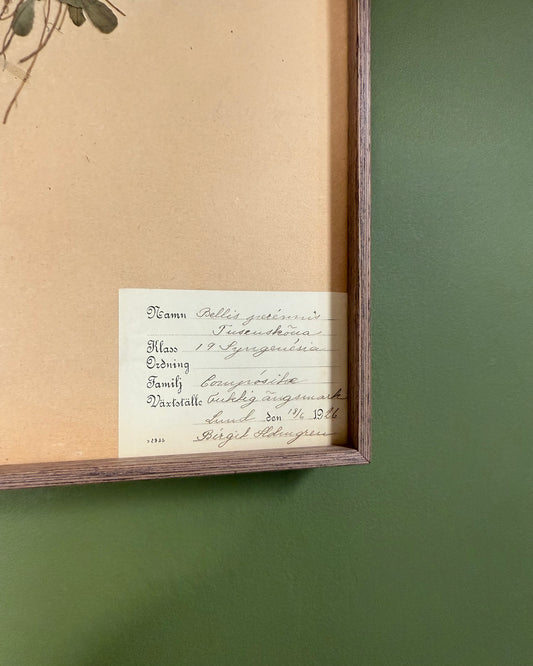 Namn Bellis perénnis
Tusensköna
Klass 19 Syngenésia
Ordning
Familj Compósitæ
Växtställe Fuktig ängsmark
Lund den 13/6 1926
Birgit Holmgren